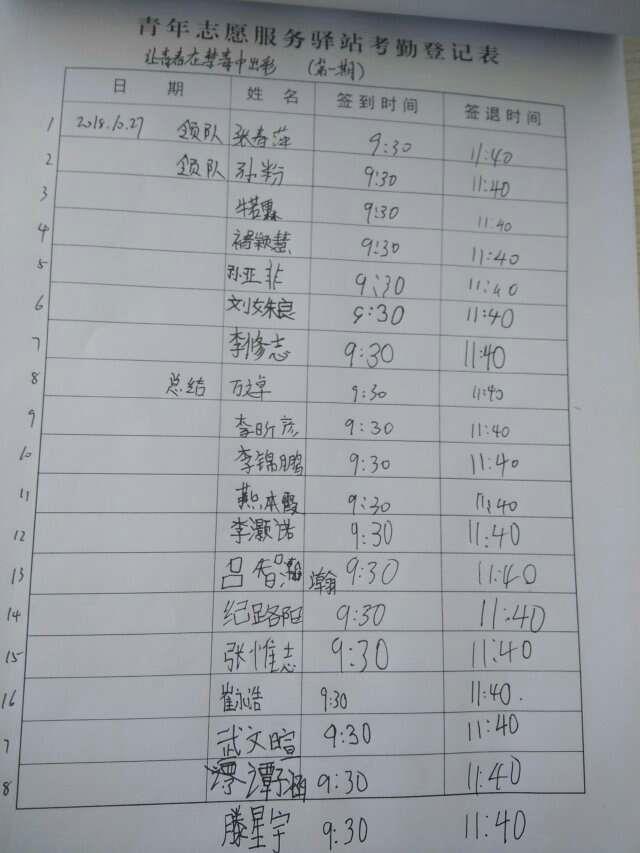 青年志愿服务驿站考勤登记表
让青春在禁毒中出彩 (第一期)
日 期 姓 名 签到时间 签退时间
1 2018.10.27 领队 张春萍 9:30 11:40
2 领队 孙粉 9:30 11:40
3 9:30 11:40
4 褚颖慧 9:30 11:40
5 孙亚非 9:30 11:40
6 9:30 11:40
7 李修志 9:30 11:40
8 总结 万文卓 9:30 11:40
9 李昕彦 9:30 11:40
10 李锦鹏 9:30 11:40
11 燕本霞 9:30 11:40
12 李灏诺 9:30 11:40
13 吕智瀚 9:30 11:40
14 纪路阳 9:30 11:40
15 张惟志 9:30 11:40
16 崔永浩 9:30 11:40.
7 武文暄 9:30 11:40
8 谭子涵 9:30 11:40
滕星宇 9:30 11:40